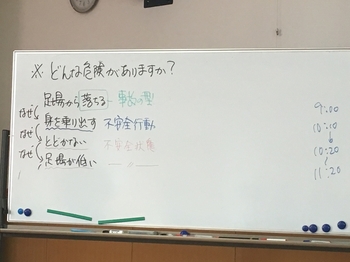 ※ どんな危険がありますか?
足場から落ちる 事故の型
なぜ 身を乗り出す 不安全行動
なぜ とどかない 不安全状態
なぜ 足場が低い 〃
9:00
10:10
10:20
11:20